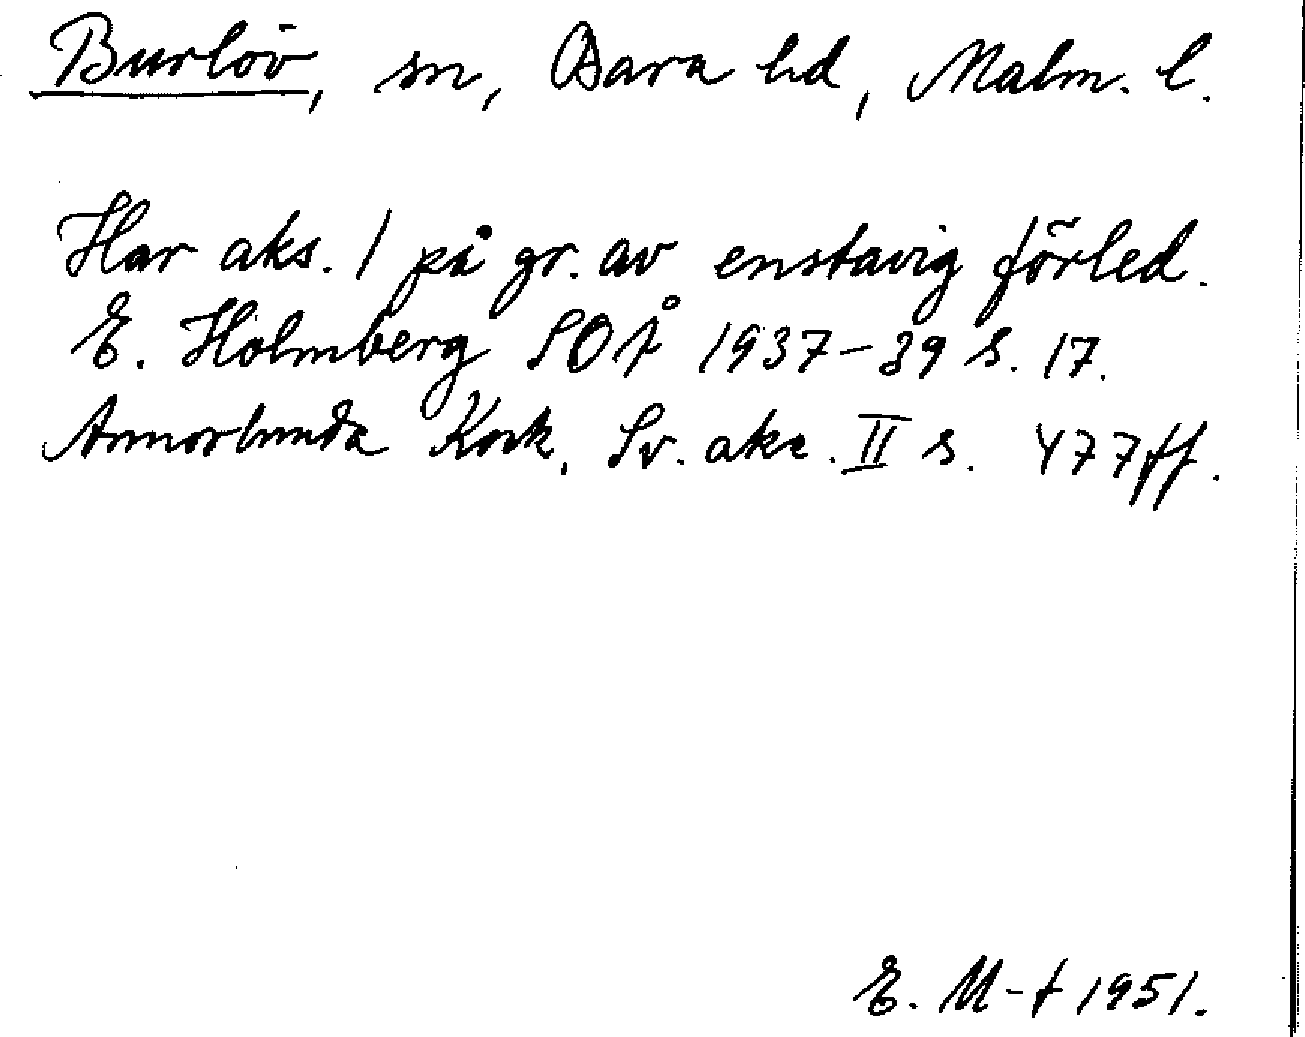 Burlöv, sn, Bara hd, Malm. l.
Har aks. 1 på gr. av enstavig förled.
E. Holmberg SOÅ 1937-39 s. 17.
Annorlunda Kock, Sv. akc. II s. 477 ff.
E. M-t 1951.